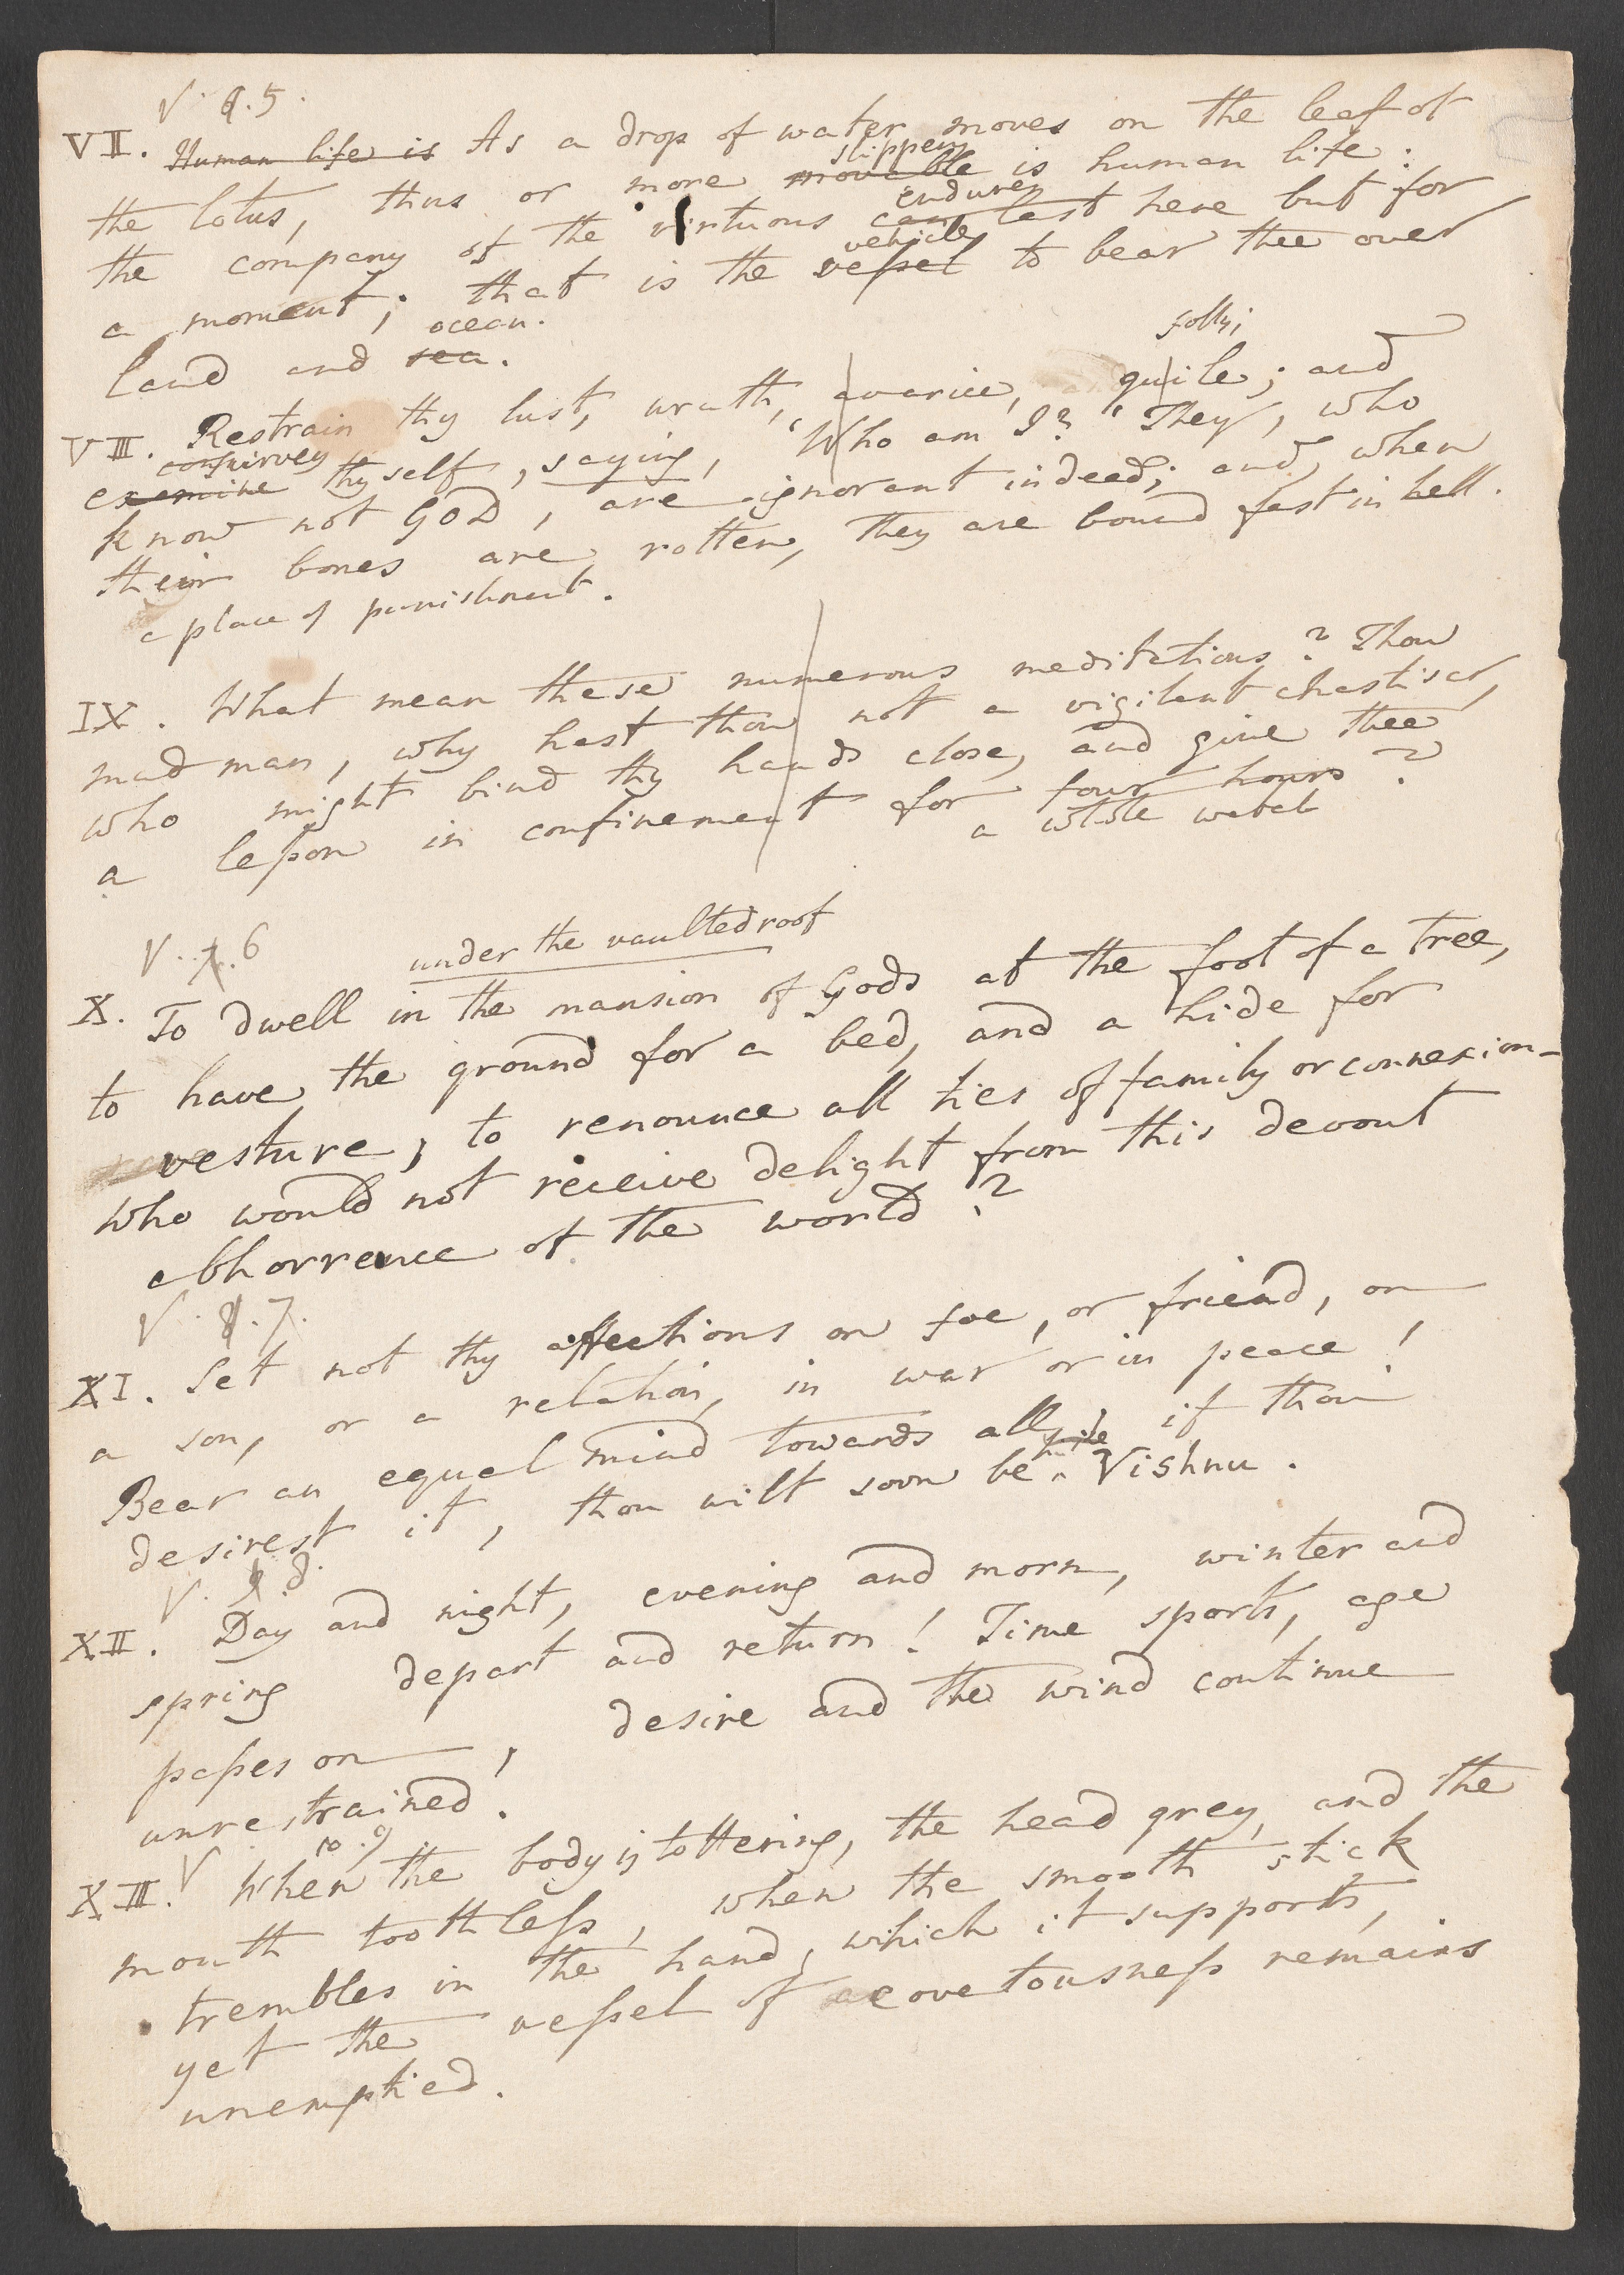 V. 5.
VII. Human life is As a drop of water moves on the leaf of
slippery
the lotus, thus or more movable is human life:
endures
the company of the virtuous can last here but for
vehicle
a moment; that is the vessel to bear thee over
ocean.
land and sea.
folly;
VIII. Restrain thy lust, wrath, avarice, guile; and
survey
examine thyself, saying, 'Who am I?' They, who
know not GOD, are ignorant indeed; and, when
their bones are rotten, they are bound fast in hell.
a place of punishment.
IX. What mean these numerous meditations? Thou
mad man, why hast thou not a vigilant chastiser,
who might bind thy hands close, and give thee
a lesson in confinement for four hours?
a whole watch
V. 6
under the vaulted roof
X. To dwell in the mansion of Gods at the foot of a tree,
to have the ground for a bed, and a hide for
vesture, to renounce all ties of family or connexion—
who would not receive delight from this devout
abhorrence of the world?
V. 7.
XI. Set not thy affections on foe, or friend, on
a son, or a relation, in war or in peace!
Bear an equal mind towards all, if thou
desirest it, thou wilt soon be a Vishnu.
V. 8.
XII. Day and night, evening and morn, winter and
spring depart and return! Time sports, age
passes on, desire and the wind continue
unrestrained.
V 10. 9
XIII. When the body is tottering, the head grey, and the
mouth toothless, when the smooth stick
trembles in the hand, which it supports,
yet the vessel of covetousness remains
unemptied.